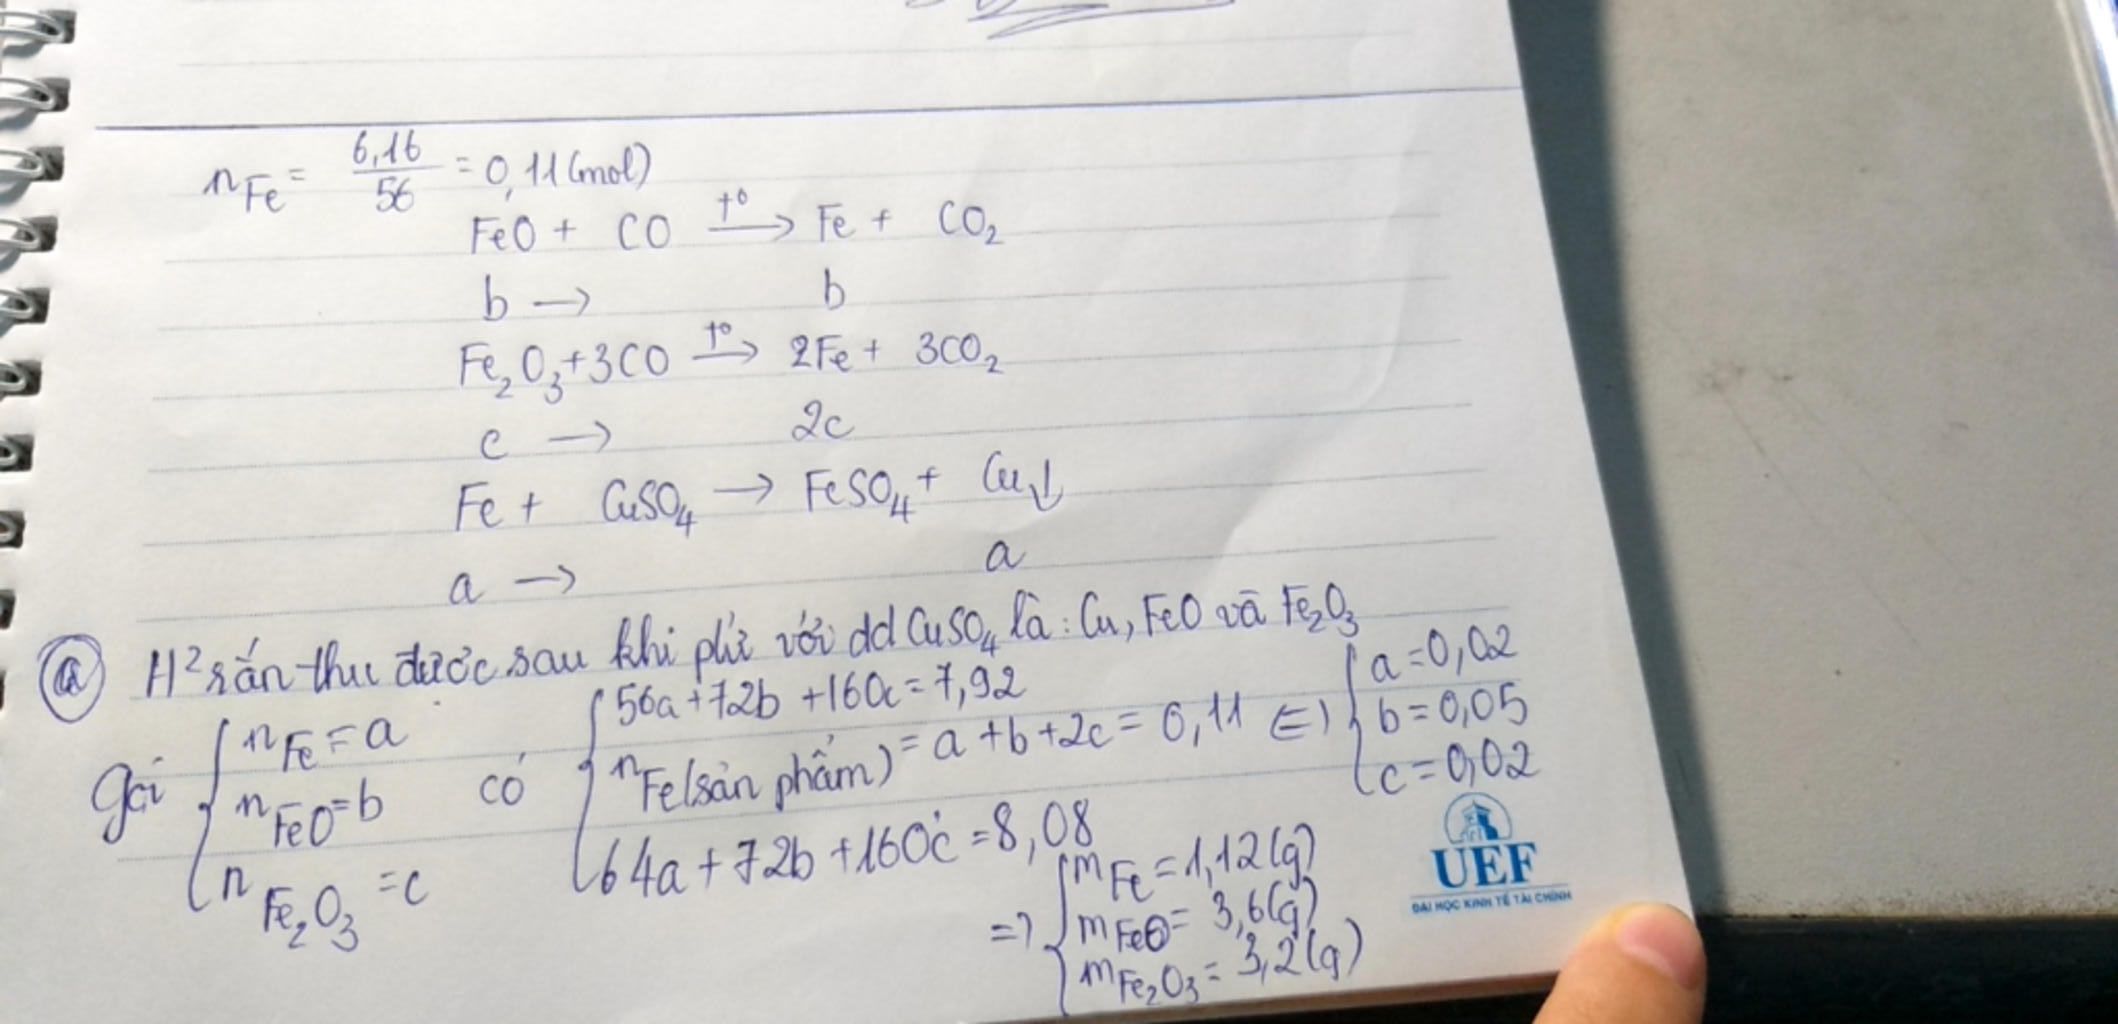 nFe = 6,16/56 = 0,11 (mol)
FeO + CO t° → Fe + CO₂
b → b
Fe₂O₃ + 3CO t° → 2Fe + 3CO₂
c → 2c
Fe + CuSO₄ → FeSO₄ + Cu↓
a → a
a) H² rắn thu được sau khi pứ với dd CuSO₄ là: Cu, FeO và Fe₂O₃
Gọi { nFe = a có { 56a + 72b + 160c = 7,92 ⇔ { a = 0,02
nFeO = b nFe(sản phẩm) = a + b + 2c = 0,11 b = 0,05
nFe₂O₃ = c 64a + 72b + 160c = 8,08 c = 0,02
⇒ { mFe = 1,12 (g)
mFeO = 3,6 (g)
mFe₂O₃ = 3,2 (g)
UEF
ĐẠI HỌC KINH TẾ TÀI CHÍNH